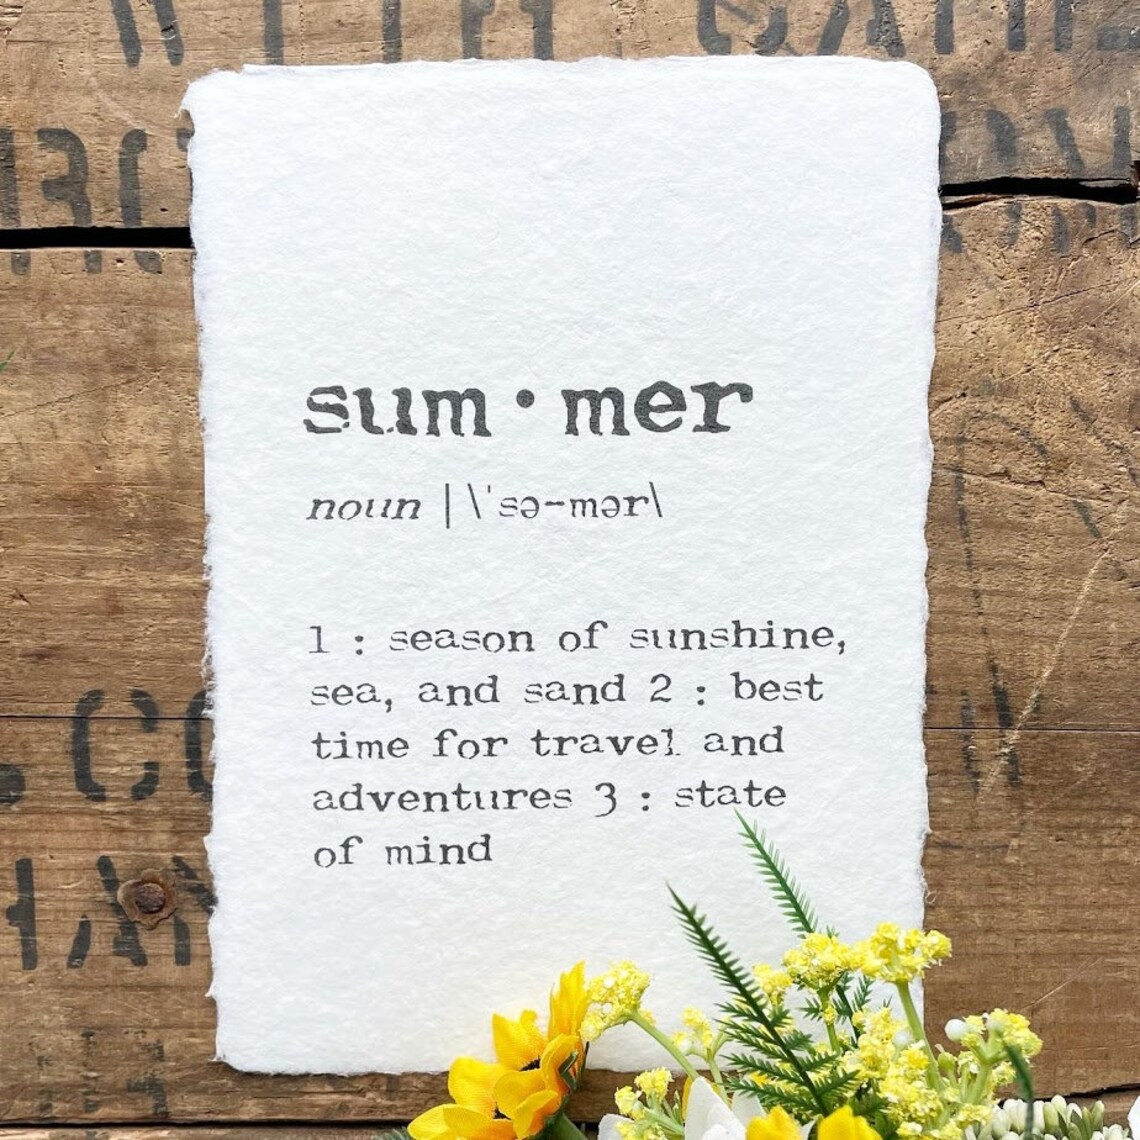 sum·mer
noun | \ˈsə-mər\
1 : season of sunshine,
sea, and sand 2 : best
time for travel and
adventures 3 : state
of mind